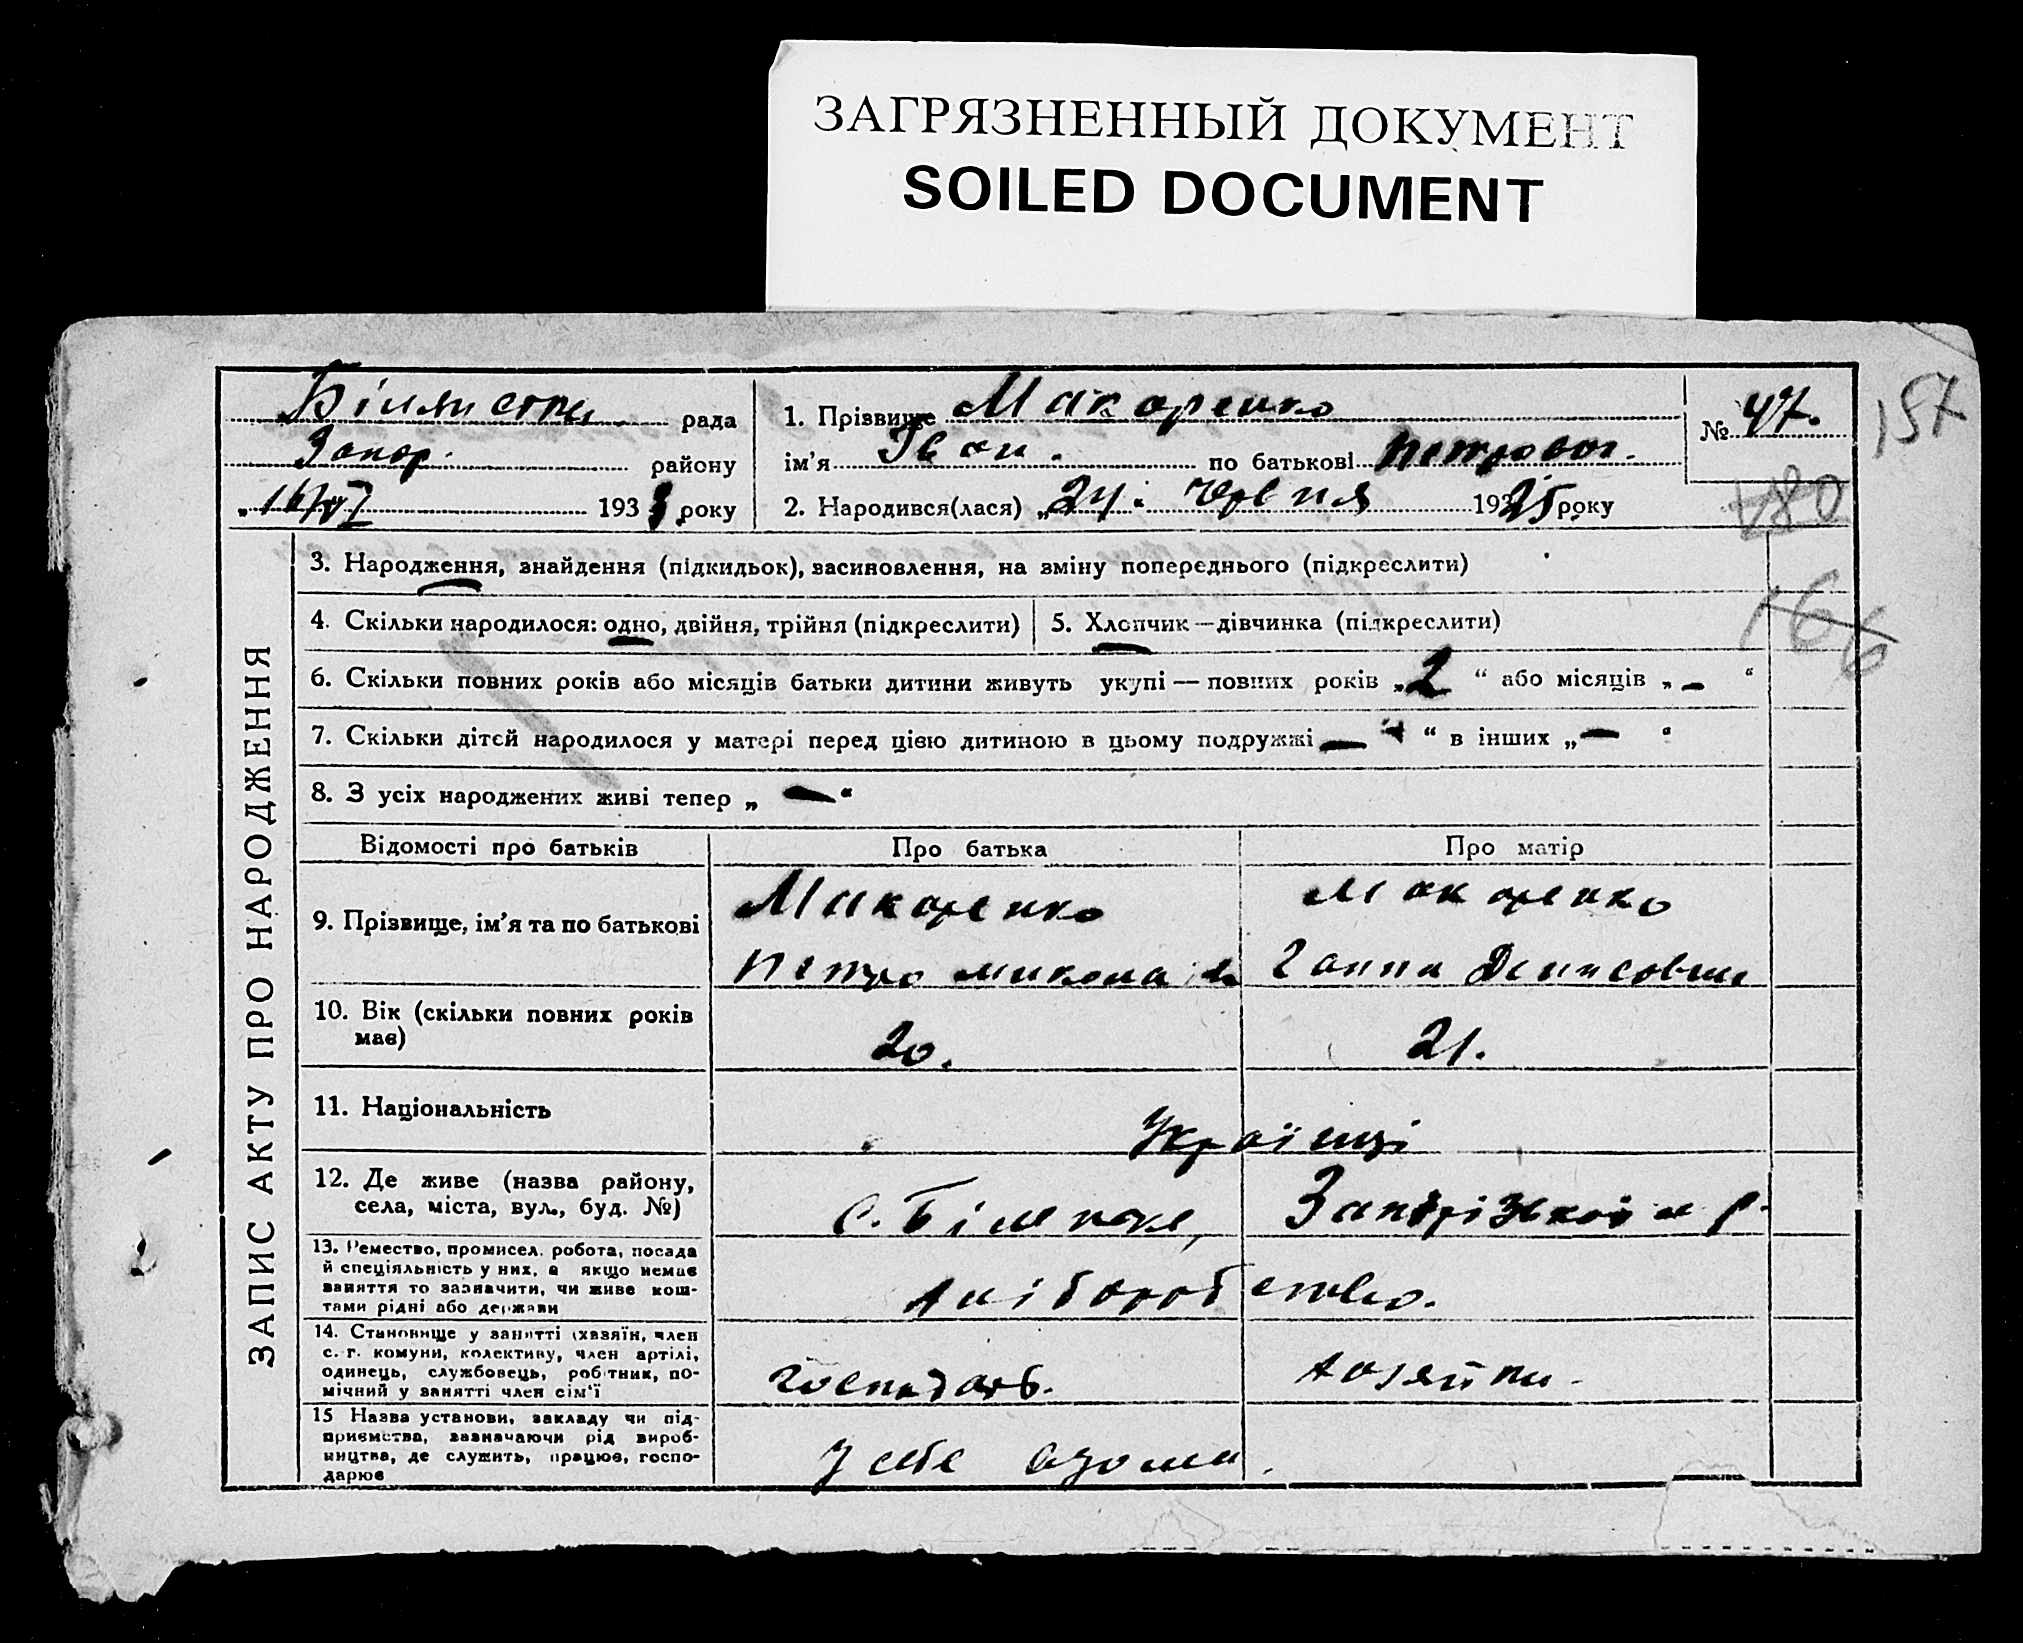 ЗАГРЯЗНЕННЫЙ ДОКУМЕНТ
SOILED DOCUMENT
рада
Запор. району
„16/VI 1933 року
1. Прізвище Макаренко
ім'я Іван. по батькові Петрович.
2. Народився(лася) „24" Червня 1925 року
№ 47.
157
180
166
ЗАПИС АКТУ ПРО НАРОДЖЕННЯ
3. Народження, знайдення (підкидьок), васиновлення, на зміну попереднього (підкреслити)
4. Скільки народилося: одно, двійня, трійня (підкреслити)
5. Хлопчик—дівчинка (підкреслити)
6. Скільки повних років або місяців батьки дитини живуть укупі — повних років „2“ або місяців „—“
7. Скільки дітей народилося у матері перед цією дитиною в цьому подружжі — “ в інших „—“
8. З усіх народжених живі тепер „—“
Відомості про батьків
Про батька
Про матір
9. Прізвище, ім'я та по батькові
Макаренко
Петро Микола
Макаренко
Ганна Денисовна
10. Вік (скільки повних років має)
20.
21.
11. Національність
Українці
12. Де живе (назва району,
села, міста, вул., буд. №)
с. Біленьке, Запорізької р.
13. Ремество, промисел, робота, посада
й спеціяльність у них, а якщо немає
заняття то зазначити, чи живе кош-
тами рідні або держави
хліборобство.
14. Становище у занятті (хазяїн, член
с.-г. комуни, колективу, член артілі,
одинець, службовець, робітник, по-
мічний у занятті член сім'ї
господарь.
хозяйка.
15 Назва установи, закладу чи під-
приємства, зазначаючи рід вироб-
ництва, де служить, працює, госпо-
дарює
у себе вдома.